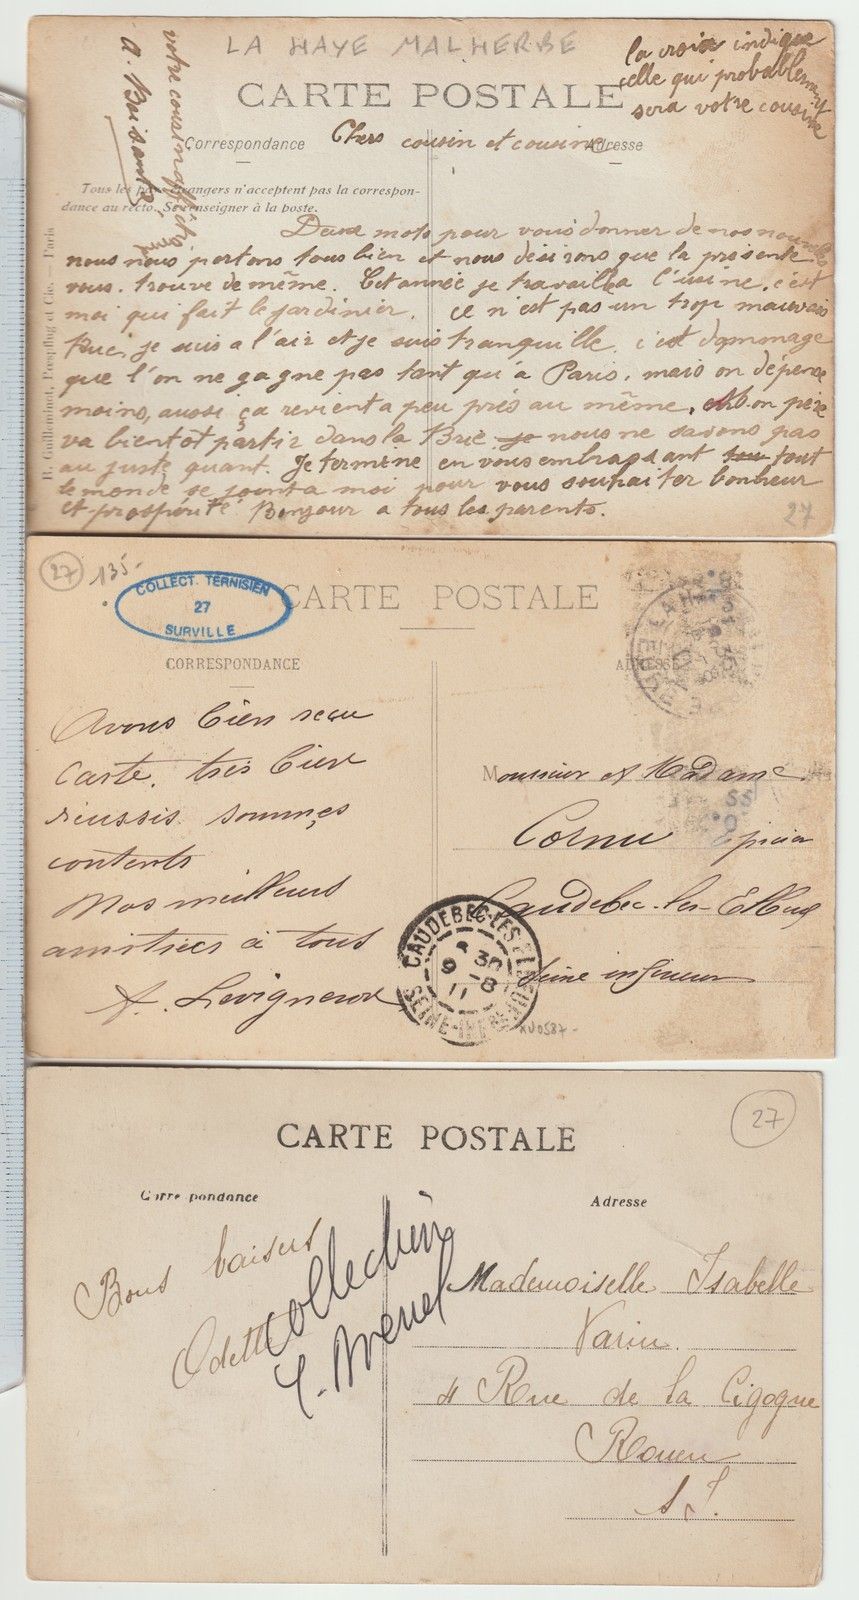 LA HAYE MALHERBE
la croix indique
celle qui probablement
sera votre cousine
CARTE POSTALE
Correspondance
Adresse
Chers cousin et cousine
Tous les pays étrangers n'acceptent pas la correspon-
dance au recto. Se renseigner à la poste.
Deux mots pour vous donner de nos nouvelles
nous nous portons tous bien et nous désirons que la présente
vous trouve de même. Cet année je travaille a l'usine, c'est
moi qui fait le jardinier. ce n'est pas un trop mauvais
truc, je suis a l'air et je suis tranquille c'est dommage
que l'on ne gagne pas tant qu'à Paris, mais on dépense
moins, aussi ça revient a peu près au même. Mon père
va bientôt partir dans la Brie je nous ne savons pas
au juste quant. Je termine en vous embrassant tou tout
le monde se joint a moi pour vous souhaiter bonheur
et prospérité Bonjour a tous les parents.
votre cousin
27
Paris
27
135-
COLLECT. TERNISIEN
27
SURVILLE
CARTE POSTALE
CORRESPONDANCE
ADRESSE
Avons bien reçu
Carte. très bien
réussis sommes
contents
Nos meilleurs
amitiées à tous
A. Levigneux
Monsieur et Madame
Cornu épicier
Caudebec-les-Elbeuf
Seine inférieure
CAUDEBEC-LES-ELBEUF
30
9 -8
11
SEINE-INFRE
XU0587-
27
CARTE POSTALE
Correspondance
Adresse
Bons baisers
Odette
Collection
Mademoiselle Isabelle
Varin
4 Rue de la Cigogne
Rouen
S I.